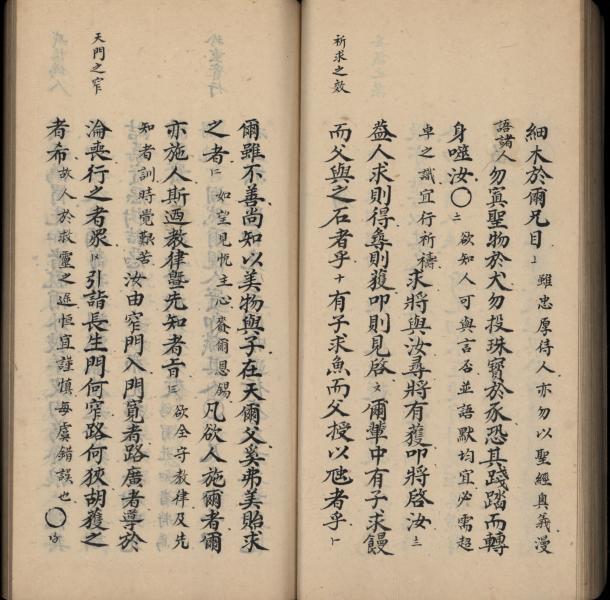 祈求之效
細木於爾兄目雖忠厚待人亦勿以聖經奧義漫
語諸人勿寘聖物於犬勿投珠寶於豕恐其踐踏而轉
身噬汝〇欲知人可與言否並語默均宜必需超
卓之識宜行祈禱求將與汝尋將有獲叩將啓汝三
蓋人求則得尋則獲叩則見啓爾輩中有子求饅
而父與之石者乎十有子求魚而父授以虺者乎
天門之窄
爾雖不善尚知以美物與子在天爾父奚弗美貽求
之者如望見忱主心賚爾恩錫凡欲人施爾者爾
亦施人斯廼教律曁先知者言欲全守教律及先
知者訓時覺艱苦汝由窄門入門寬者路廣者導於
淪喪行之者眾引詣長生門何窄路何狹胡獲之
者希故人於救靈之恒宜謹慎每虞錯誤也〇